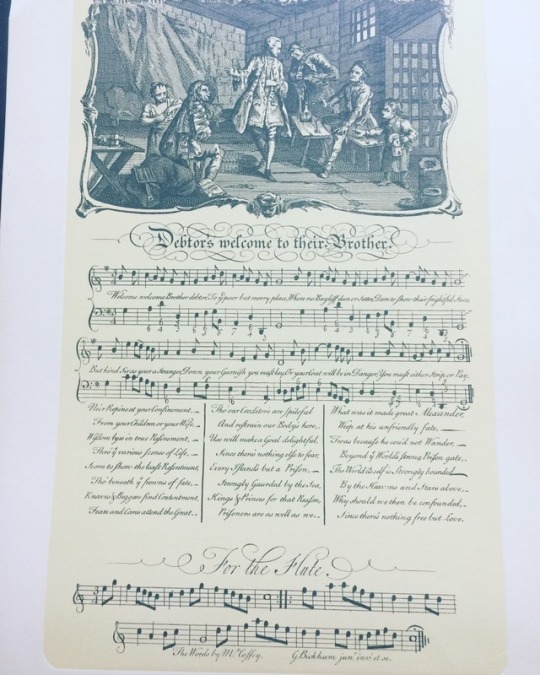 Debtor's welcome to their Brother.
Welcome welcome Brother debtor, To yͤ poor but merry place, Where no Bayliff, dun or Setter, Dare to shew their frightful Face,
But kind Sir as your a Stranger, Down your Garnish you must lay, Or your Coat will be in Danger, You must either Strip or Pay.
Ne'er Repine at your Confinement
From your Children or your Wife,
Wisdom lyes in true Refinement,
Thro' yͤ various scenes of Life,
Scorn to shew the least Resentment,
Tho' beneath yͤ frowns of fate,
Knaves & Beggars find Contentment,
Fears and Cares attend the Great.
Tho our Creditors are spiteful
And restrain our Bodys here,
Use will make a Goal delightful,
Since there's nothing else to fear,
Every Island's but a Prison,
Strongly Gaurded by the Sea,
Kings & Princes for that Reason,
Prisoners are as well as we.
What was it made great Alexander
Weep at his unfriendly fate,
Twas because he cou'd not Wander,
Beyond yͤ Worlds strong Prison gate,
The World itself is Strongly bounded
By the Heavens and Stars above,
Why should we then be confounded,
Since there's nothing free but Love.
For the Flute.
The Words by Mr. Coffey.
G. Bickham jun.r inv.t et sc.